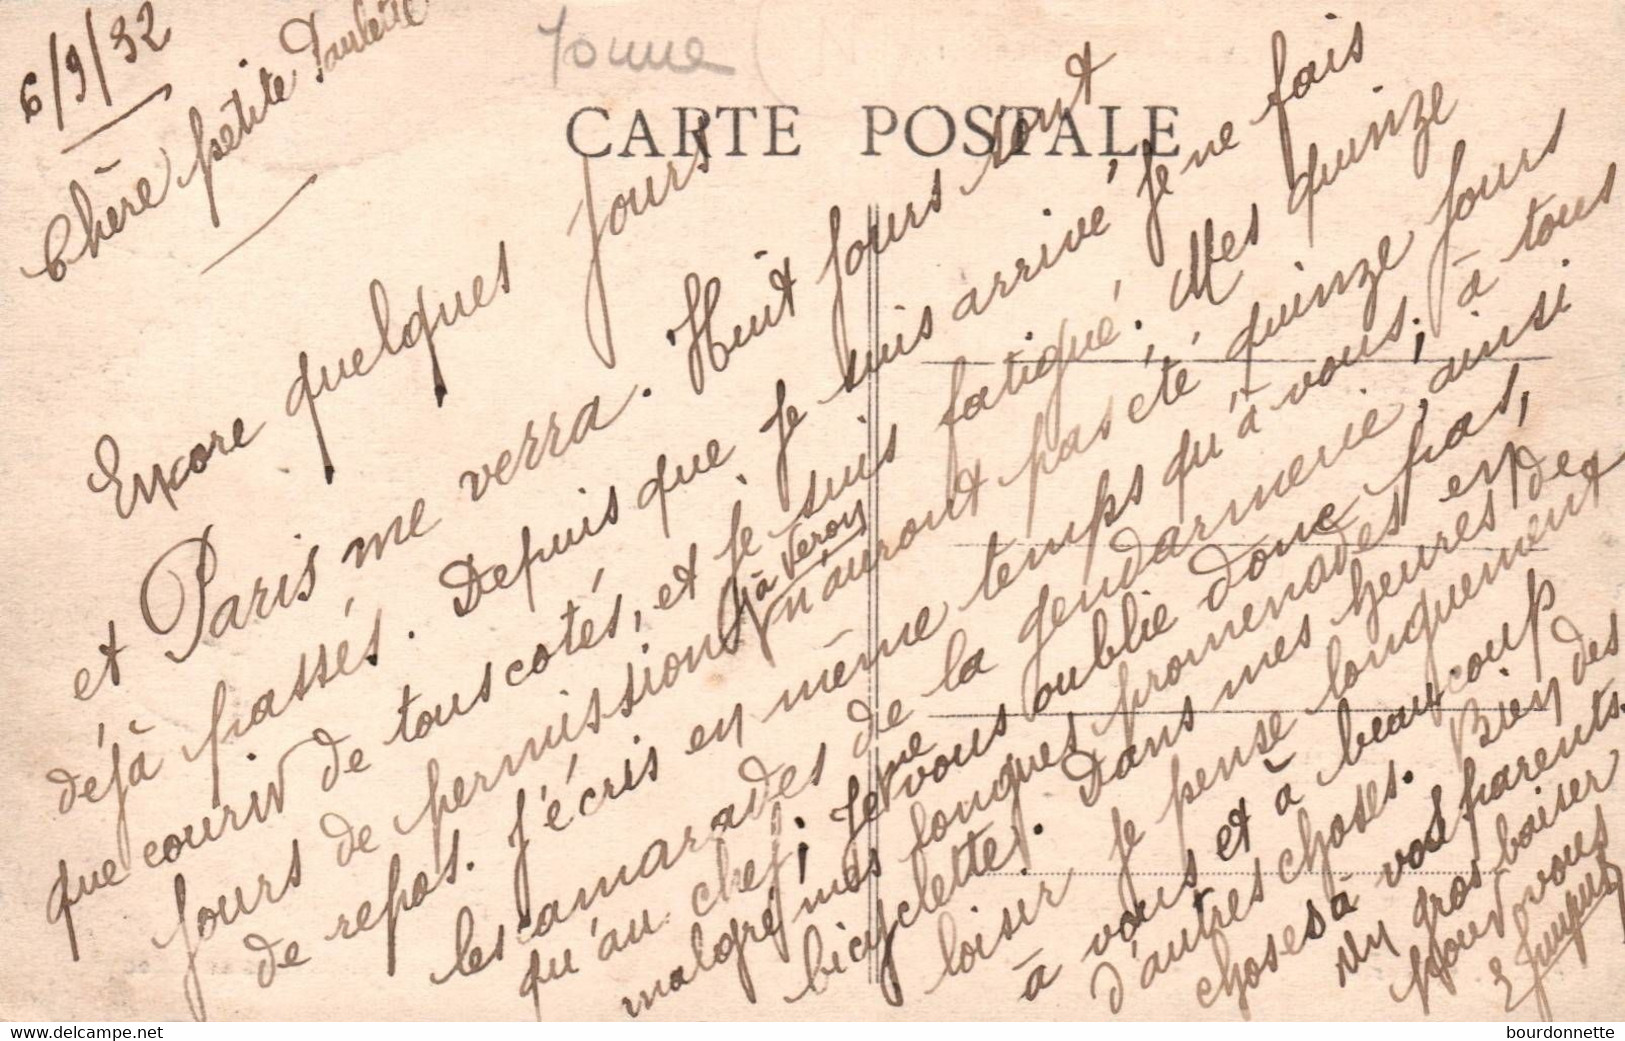 6/9/32
Yonne
CARTE POSTALE
Chère petite Paulette
Encore quelques jours
et Paris me verra. Huit jours sont
déjà passés. Depuis que je suis arrivé je ne fais
que courir de tous cotés, et je suis fatigué. Mes quinze
jours de permission à Veron n'auront pas été quinze jours
de repos. J'écris en même temps qu'à vous, à tous
les camarades de la gendarmerie, ainsi
qu'au chef; Je ne vous oublie donc pas,
malgré mes longues promenades en
bicyclette. Dans mes heures de
loisir je pense longuement
à vous et à beaucoup
d'autres choses. Bien des
choses à vos parents.
Un gros baiser
pour vous
bourdonnette